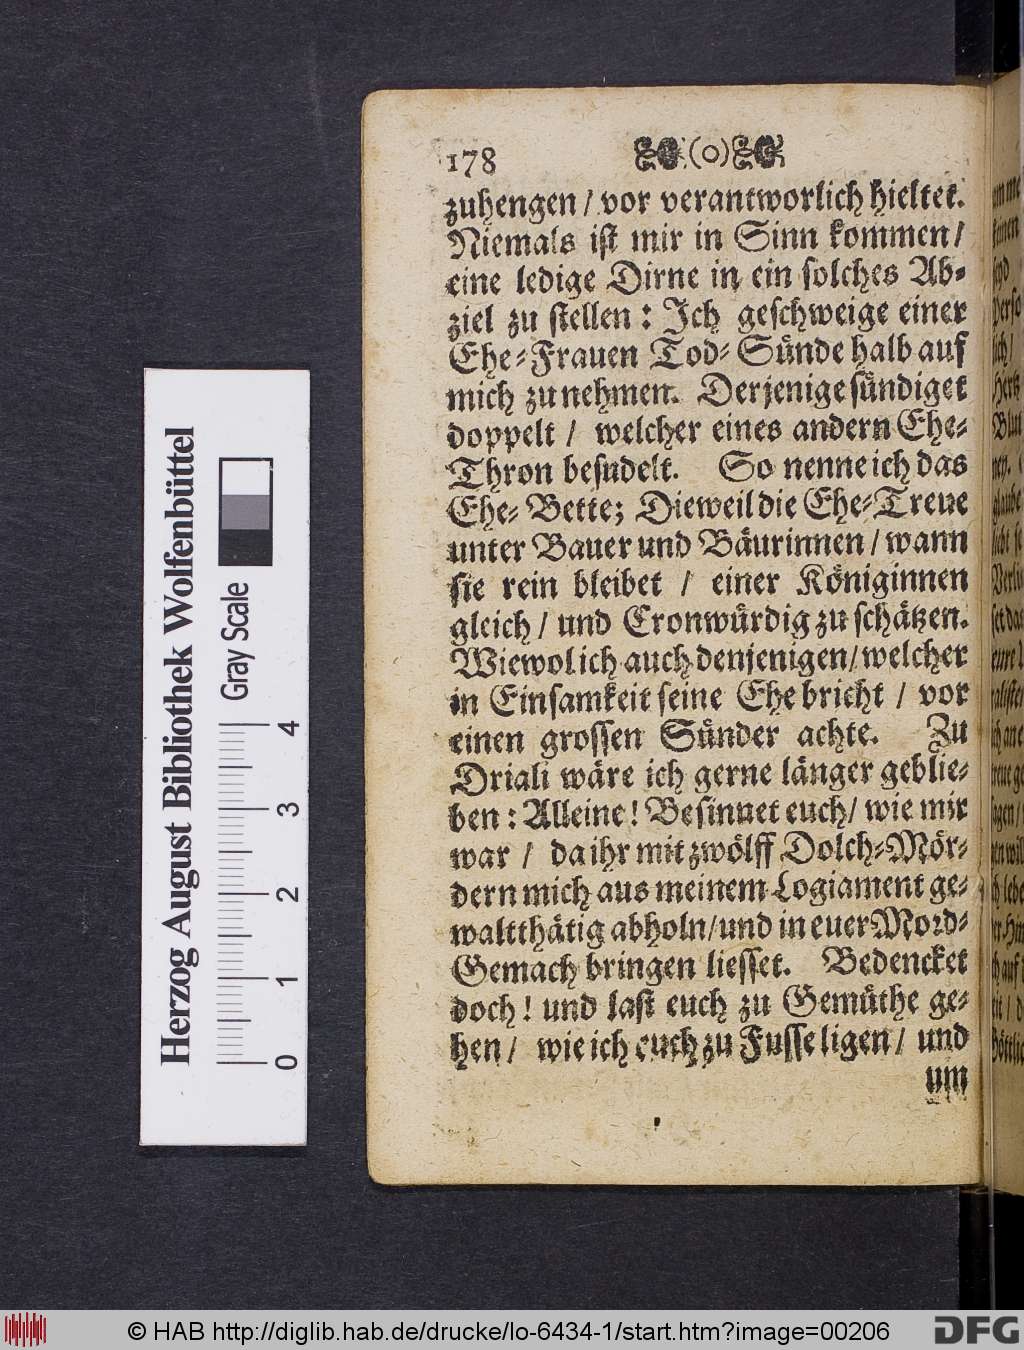 178 (o)
zuhengen / vor verantworlich hieltet.
Niemals ist mir in Sinn kommen /
eine ledige Dirne in ein solches Ab-
ziel zu stellen: Ich geschweige einer
Ehe-Frauen Tod-Sünde halb auf
mich zu nehmen. Derjenige sündiget
doppelt / welcher eines andern Ehe-
Thron besudelt. So nenne ich das
Ehe-Bette; Dieweil die Ehe-Treue
unter Bauer und Bäurinnen / wann
sie rein bleibet / einer Königinnen
gleich / und Cronwürdig zu schätzen.
Wiewol ich auch denjenigen / welcher
in Einsamkeit seine Ehe bricht / vor
einen grossen Sünder achte. Zu
Oriali wäre ich gerne länger geblie-
ben: Alleine! Besinnet euch / wie mir
war / da ihr mit zwölff Dolch-Mör-
dern mich aus meinem Logiament ge-
waltthätig abholn / und in euer Mord-
Gemach bringen liesset. Bedencket
doch! und last euch zu Gemüthe ge-
hen / wie ich euch zu Fusse ligen / und
um
Herzog August Bibliothek Wolfenbüttel
Gray Scale
0 1 2 3 4
© HAB http://diglib.hab.de/drucke/lo-6434-1/start.htm?image=00206
DFG